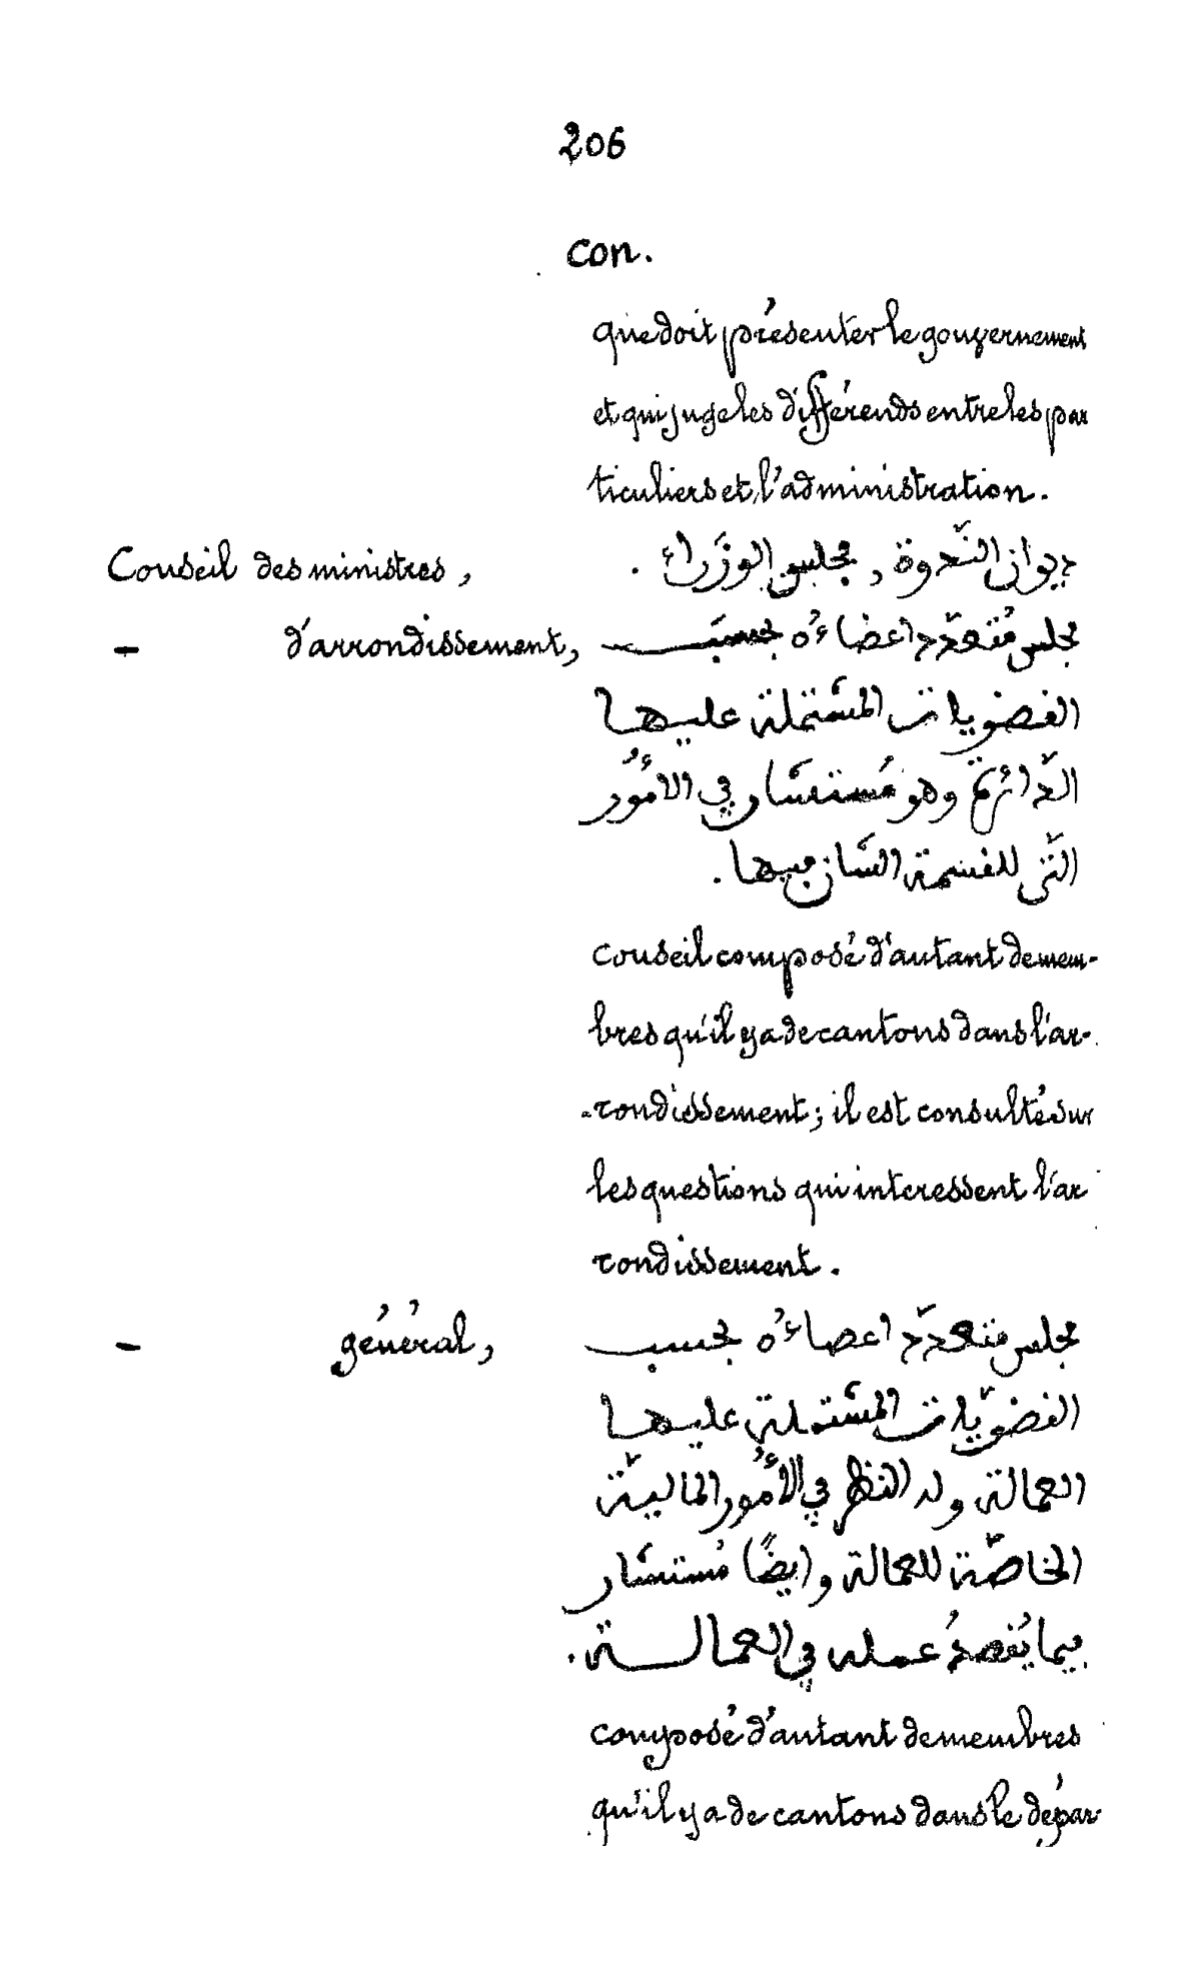 206
con.
que doit présenter le gouvernement
et qui juge les différends entre les par
ticuliers et l'administration.
Conseil des ministres, ديوان النَّدوة , مجلس الوزَراء .
— d'arrondissement, مجلس مُتعدّد اعضاءُه بحسَب
الفضويات المشَتملة عليها
الدّائرة وهو مُستشَار في الأمُور
التّي للقسمة الشَان فيها .
Conseil composé d'autant de mem-
bres qu'il y a de cantons dans l'ar-
-rondissement; il est consulté sur
les questions qui interessent l'ar
rondissement.
— général, مجلس متعدّد اعضاءُه بحسب
الفضويّات المشَتملة عليها
العمالة وله النظر في الأمُور الماليّة
الخاصّة للعمالة وايضًا مُستشَار
فيما يُقصدُ عمله في العمالة .
composé d'autant de membres
qu'il y a de cantons dans le dépar-